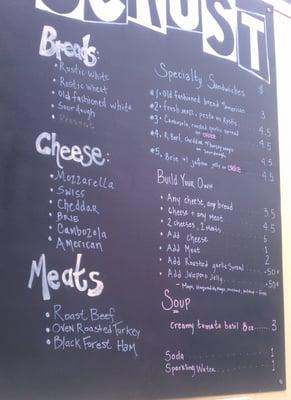 CRUST
Breads:
• Rustic White
• Rustic Wheat
• Old fashioned white
• Sourdough
Cheese:
• Mozzarella
• Swiss
• Cheddar
• Brie
• Cambozola
• American
Meats
• Roast Beef
• Oven Roasted Turkey
• Black Forest Ham
Specialty Sandwiches $
#1. Old fashioned bread American 3
#2. fresh mozz, pesto on Rustic 4.5
#3. Cambozola, roasted garlic spread 4.5
#4. R. Beef, Cheddar 4.5
on Sourdough
#5. Brie w/ jalapeno jelly 4.5
Build Your Own
• Any cheese, any bread
• Cheese + any Meat 3.5
• 2 cheeses, 2 meats 4.5
• Add Cheese
• Add Meat 1
• Add Roasted garlic Spread 2
• Add Jalapeno Jelly .50
Soup
creamy tomato basil 8oz 3
Soda 1
Sparkling Water 1